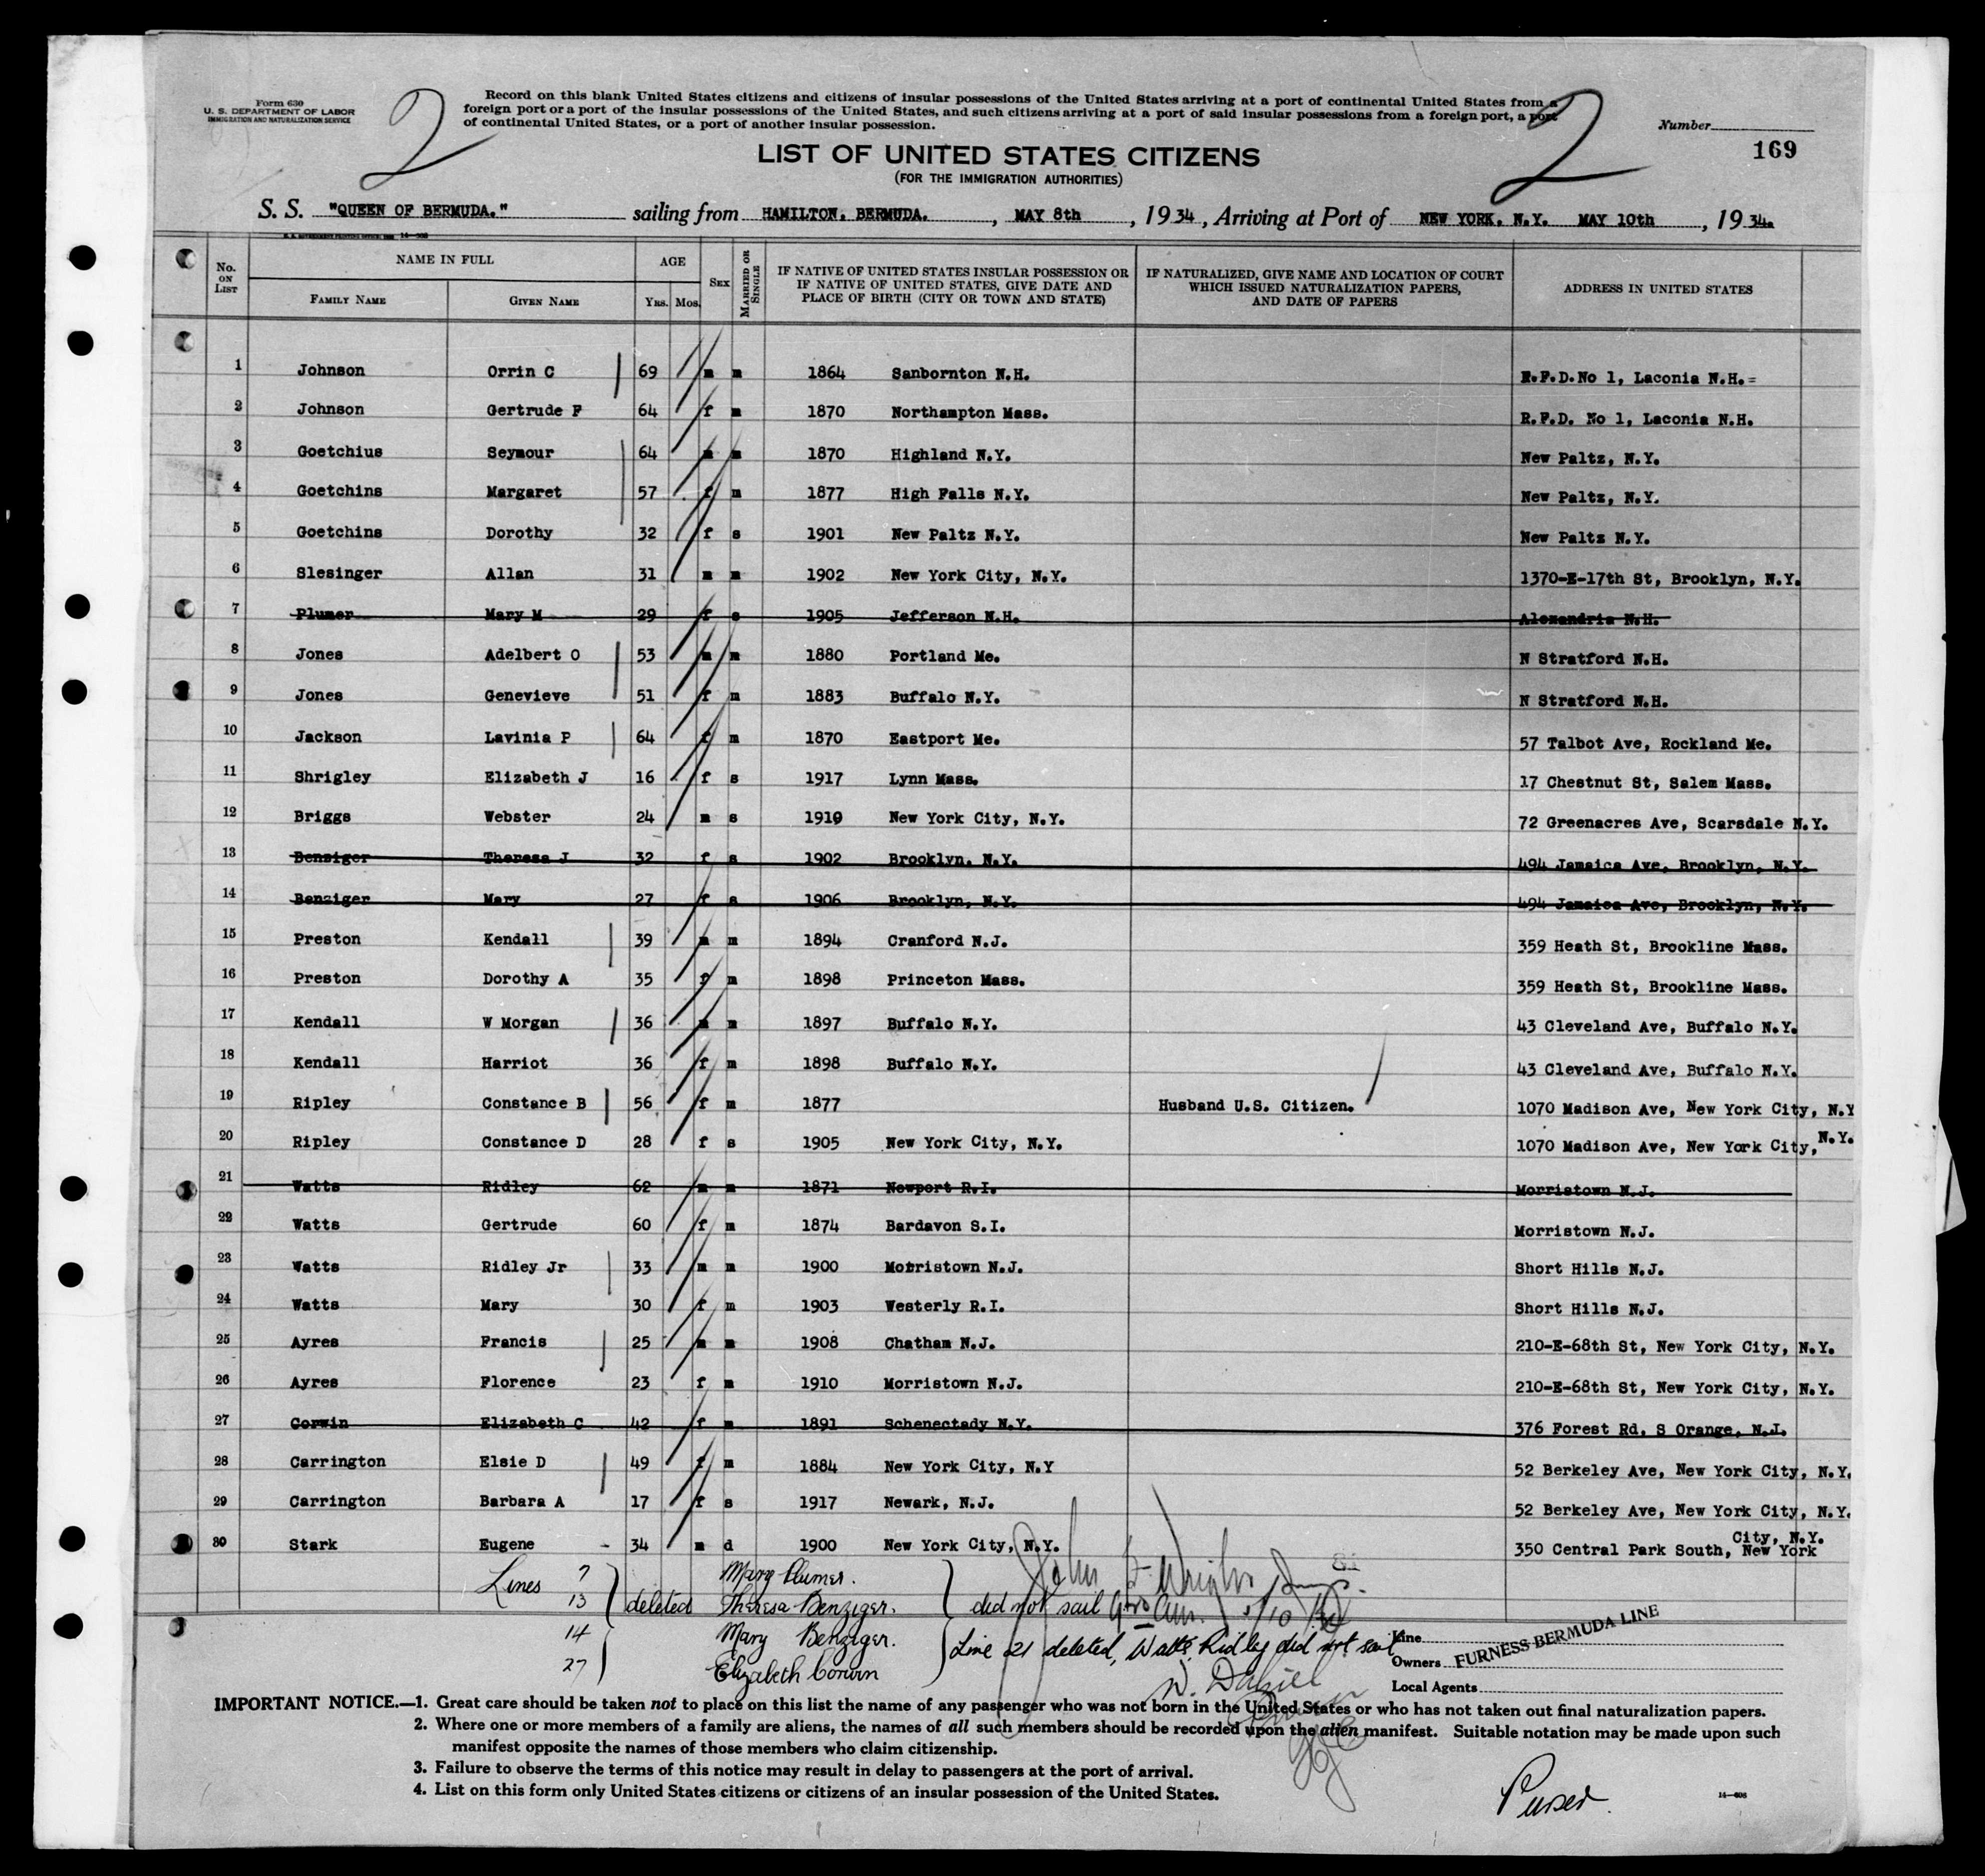 Form 630
U. S. DEPARTMENT OF LABOR
IMMIGRATION AND NATURALIZATION SERVICE
2
Record on this blank United States citizens and citizens of insular possessions of the United States arriving at a port of continental United States from a
foreign port or a port of the insular possessions of the United States, and such citizens arriving at a port of said insular possessions from a foreign port, a port
of continental United States, or a port of another insular possession.
2
Number
169
LIST OF UNITED STATES CITIZENS
(FOR THE IMMIGRATION AUTHORITIES)
S. S. "QUEEN OF BERMUDA." sailing from HAMILTON. BERMUDA. , MAY 8th , 1934, Arriving at Port of NEW YORK. N.Y. MAY 10th , 1934.
No. ON LIST
NAME IN FULL
FAMILY NAME
GIVEN NAME
AGE
YRS. MOS.
SEX
MARRIED OR SINGLE
IF NATIVE OF UNITED STATES INSULAR POSSESSION OR
IF NATIVE OF UNITED STATES, GIVE DATE AND
PLACE OF BIRTH (CITY OR TOWN AND STATE)
IF NATURALIZED, GIVE NAME AND LOCATION OF COURT
WHICH ISSUED NATURALIZATION PAPERS,
AND DATE OF PAPERS
ADDRESS IN UNITED STATES
1 Johnson Orrin C 69 m m 1864 Sanbornton N.H. R.F.D.No 1, Laconia N.H.=
2 Johnson Gertrude F 64 f m 1870 Northampton Mass. R.F.D. No 1, Laconia N.H.
3 Goetchius Seymour 64 m m 1870 Highland N.Y. New Paltz, N.Y.
4 Goetchins Margaret 57 f m 1877 High Falls N.Y. New Paltz, N.Y.
5 Goetchins Dorothy 32 f s 1901 New Paltz N.Y. New Paltz N.Y.
6 Slesinger Allan 31 m m 1902 New York City, N.Y. 1370-E-17th St, Brooklyn, N.Y.
7 Plumer Mary M 29 f s 1905 Jefferson N.H. Alexandria N.H.
8 Jones Adelbert O 53 m m 1880 Portland Me. N Stratford N.H.
9 Jones Genevieve 51 f m 1883 Buffalo N.Y. N Stratford N.H.
10 Jackson Lavinia P 64 f m 1870 Eastport Me. 57 Talbot Ave, Rockland Me.
11 Shrigley Elizabeth J 16 f s 1917 Lynn Mass. 17 Chestnut St, Salem Mass.
12 Briggs Webster 24 m s 1910 New York City, N.Y. 72 Greenacres Ave, Scarsdale N.Y.
13 Benziger Theresa J 32 f s 1902 Brooklyn, N.Y. 494 Jamaica Ave, Brooklyn, N.Y.
14 Benziger Mary 27 f s 1906 Brooklyn, N.Y. 494 Jamaica Ave, Brooklyn, N.Y.
15 Preston Kendall 39 m m 1894 Cranford N.J. 359 Heath St, Brookline Mass.
16 Preston Dorothy A 35 f m 1898 Princeton Mass. 359 Heath St, Brookline Mass.
17 Kendall W Morgan 36 m m 1897 Buffalo N.Y. 43 Cleveland Ave, Buffalo N.Y.
18 Kendall Harriot 36 f m 1898 Buffalo N.Y. 43 Cleveland Ave, Buffalo N.Y.
19 Ripley Constance B 56 f m 1877 Husband U.S. Citizen. 1070 Madison Ave, New York City, N.Y
20 Ripley Constance D 28 f s 1905 New York City, N.Y. 1070 Madison Ave, New York City, N.Y.
21 Watts Ridley 62 m m 1871 Newport R.I. Morristown N.J.
22 Watts Gertrude 60 f m 1874 Bardavon S.I. Morristown N.J.
23 Watts Ridley Jr 33 m m 1900 Morristown N.J. Short Hills N.J.
24 Watts Mary 30 f m 1903 Westerly R.I. Short Hills N.J.
25 Ayres Francis 25 m m 1908 Chatham N.J. 210-E-68th St, New York City, N.Y.
26 Ayres Florence 23 f m 1910 Morristown N.J. 210-E-68th St, New York City, N.Y.
27 Corwin Elizabeth C 42 f m 1891 Schenectady N.Y. 376 Forest Rd. S Orange, N.J.
28 Carrington Elsie D 49 f m 1884 New York City, N.Y 52 Berkeley Ave, New York City, N.Y.
29 Carrington Barbara A 17 f s 1917 Newark, N.J. 52 Berkeley Ave, New York City, N.Y.
30 Stark Eugene - 34 m d 1900 New York City, N.Y. 350 Central Park South, New York City, N.Y.
Lines 7 Mary Plumer.
13 deleted Theresa Benziger. did not sail
14 Mary Benziger. Line 21 deleted, Watts, Ridley did not sail
27 Elizabeth Corwin
5/10/34
Line
Owners FURNESS BERMUDA LINE
Local Agents
IMPORTANT NOTICE.—1. Great care should be taken not to place on this list the name of any passenger who was not born in the United States or who has not taken out final naturalization papers.
2. Where one or more members of a family are aliens, the names of all such members should be recorded upon the alien manifest. Suitable notation may be made upon such
manifest opposite the names of those members who claim citizenship.
3. Failure to observe the terms of this notice may result in delay to passengers at the port of arrival.
4. List on this form only United States citizens or citizens of an insular possession of the United States.
Purser.